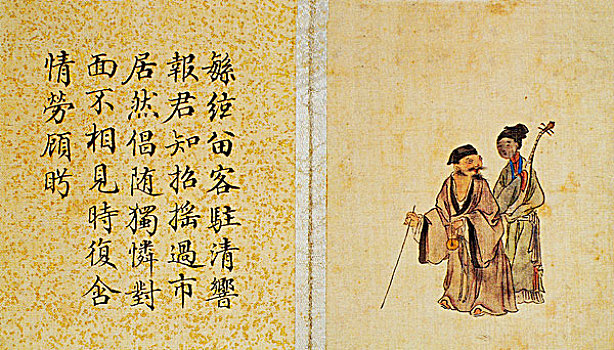 繇絃留客駐清響
報君知招搖過市
居然倡随獨憐對
面不相見時復含
情勞顧眄